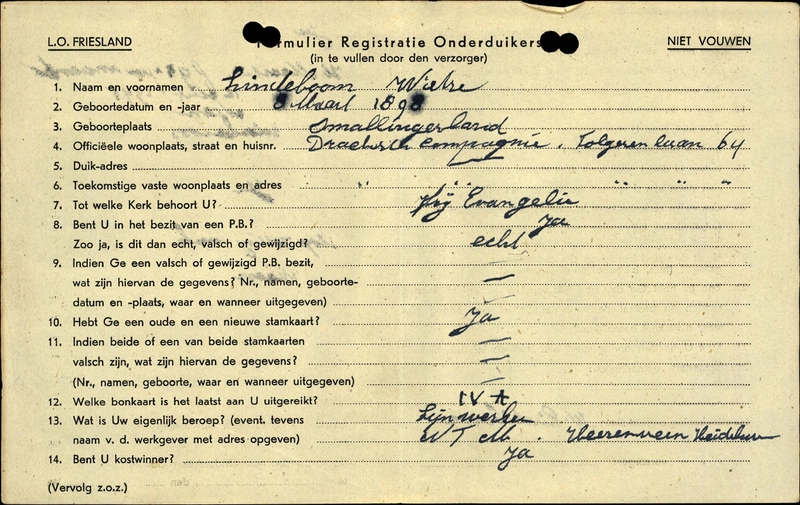 L.O. FRIESLAND Formulier Registratie Onderduikers NIET VOUWEN
(in te vullen door den verzorger)
1. Naam en voornamen Lindeboom Wietse
2. Geboortedatum en -jaar 8 Maart 1898
3. Geboorteplaats Smallingerland
4. Officiëele woonplaats, straat en huisnr. Drachtster Compagnie. Folgeren laan 64
5. Duik-adres —
6. Toekomstige vaste woonplaats en adres " " " " "
7. Tot welke Kerk behoort U? Vrij Evangelie
8. Bent U in het bezit van een P.B.? Ja
Zoo ja, is dit dan echt, valsch of gewijzigd? echt
9. Indien Ge een valsch of gewijzigd P.B. bezit, —
wat zijn hiervan de gegevens? Nr., namen, geboorte- —
datum en -plaats, waar en wanneer uitgegeven) —
10. Hebt Ge een oude en een nieuwe stamkaart? Ja
11. Indien beide of een van beide stamkaarten —
valsch zijn, wat zijn hiervan de gegevens? —
(Nr., namen, geboorte, waar en wanneer uitgegeven) —
12. Welke bonkaart is het laatst aan U uitgereikt? IV A
13. Wat is Uw eigenlijk beroep? (event. tevens Lijnwerker
naam v. d. werkgever met adres opgeven) Heerenveen
14. Bent U kostwinner? Ja
(Vervolg z.o.z.)